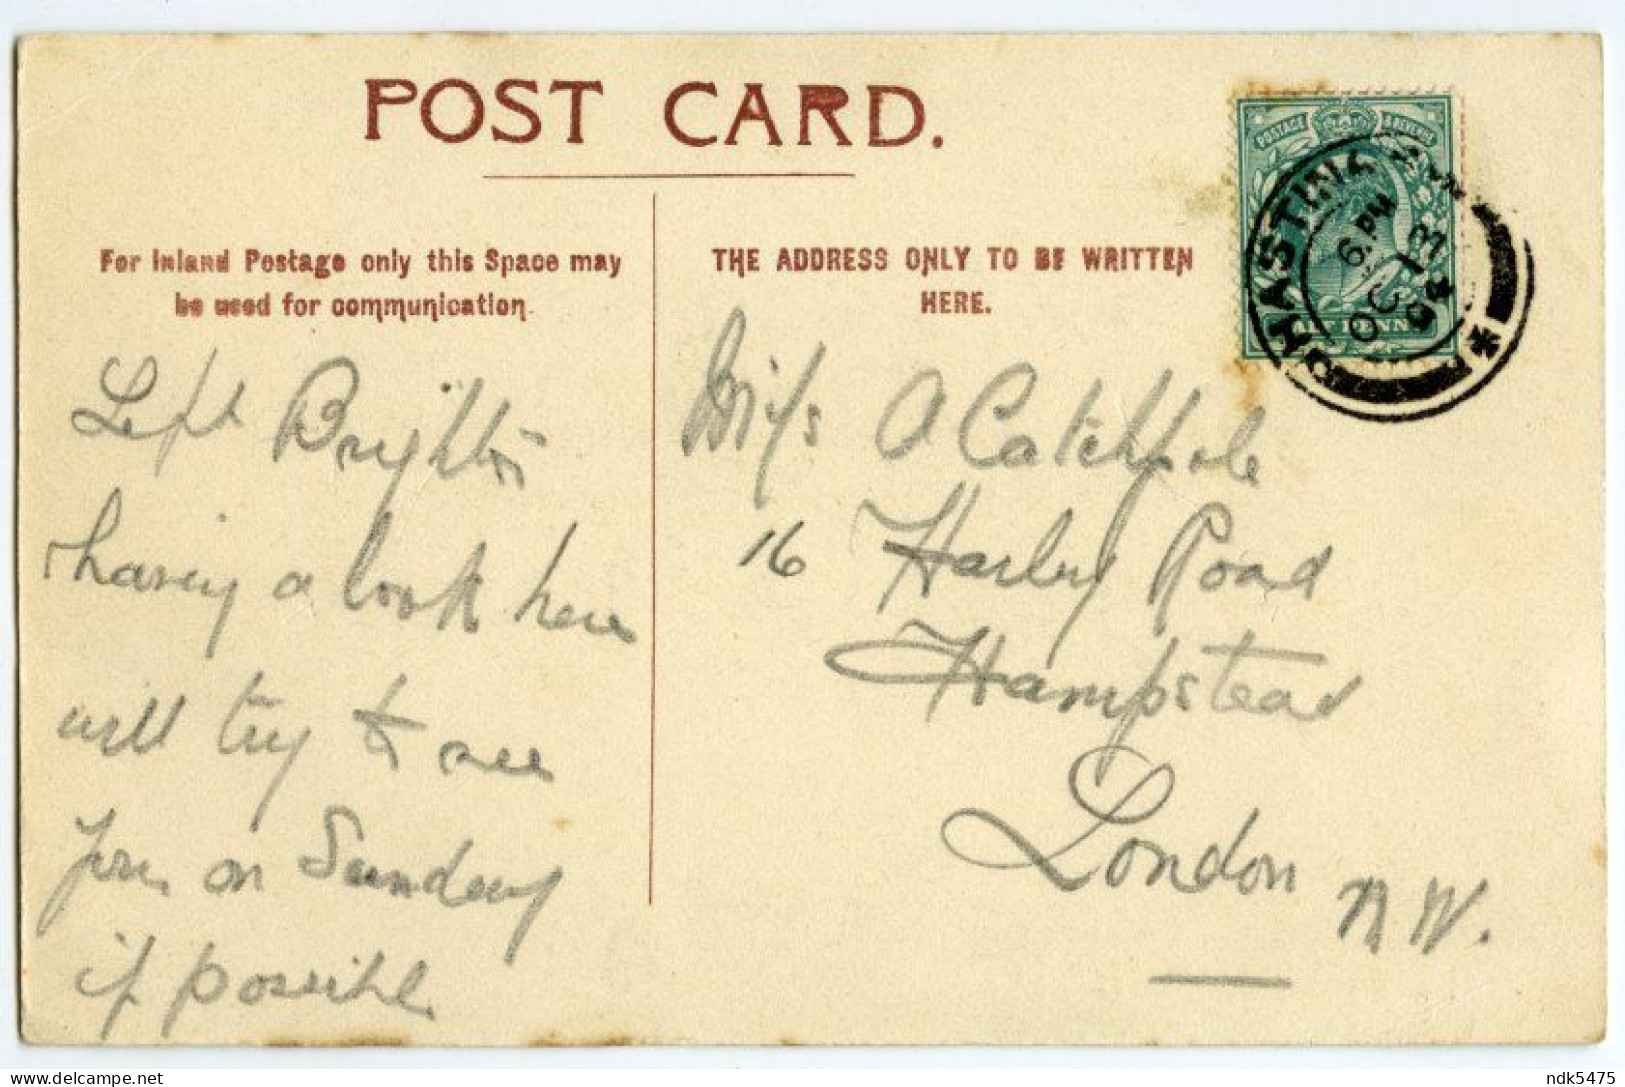 POST CARD.
For Inland Postage only this Space may
be used for communication.
THE ADDRESS ONLY TO BE WRITTEN
HERE.
POSTAGE & REVENUE
HASTINGS
6 PM
OC 13
04
HALF PENNY
Left Brighton
having a look here
will try to see
you on Sunday
if possible
Miss A Catchpole
16 Harley Road
Hampstead
London N.W.
ndk5475